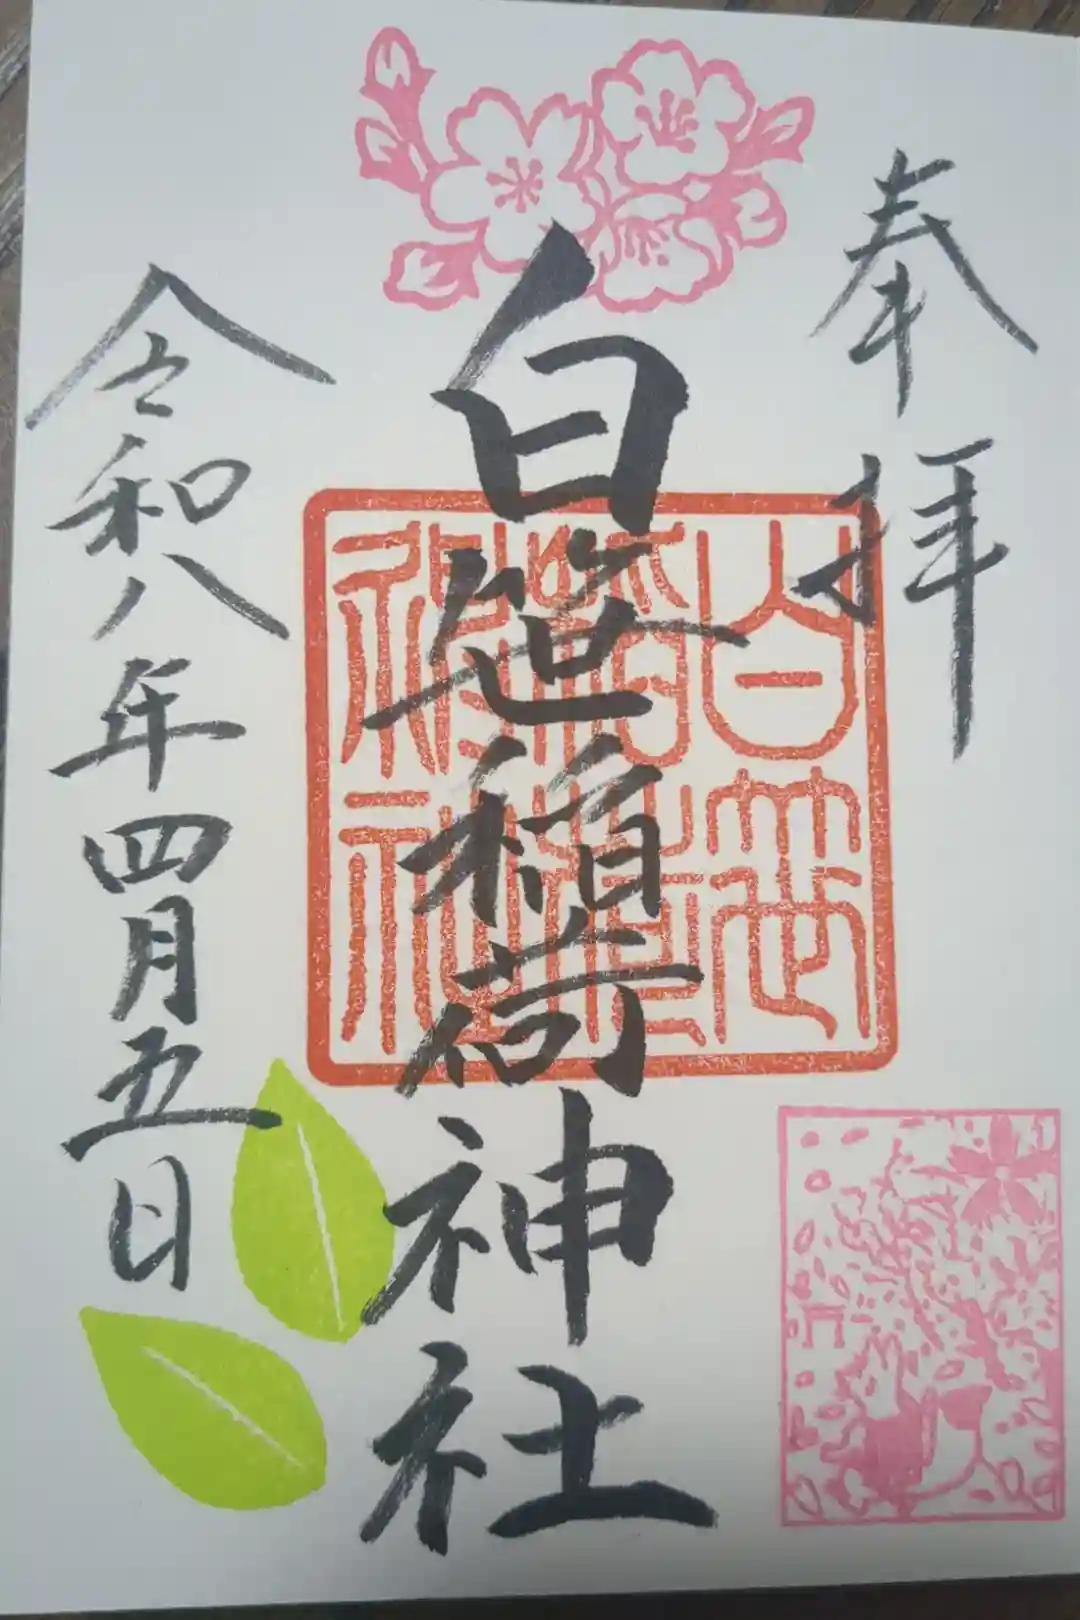 奉拝
白笹稲荷神社
白笹稲荷神社
令和八年四月五日